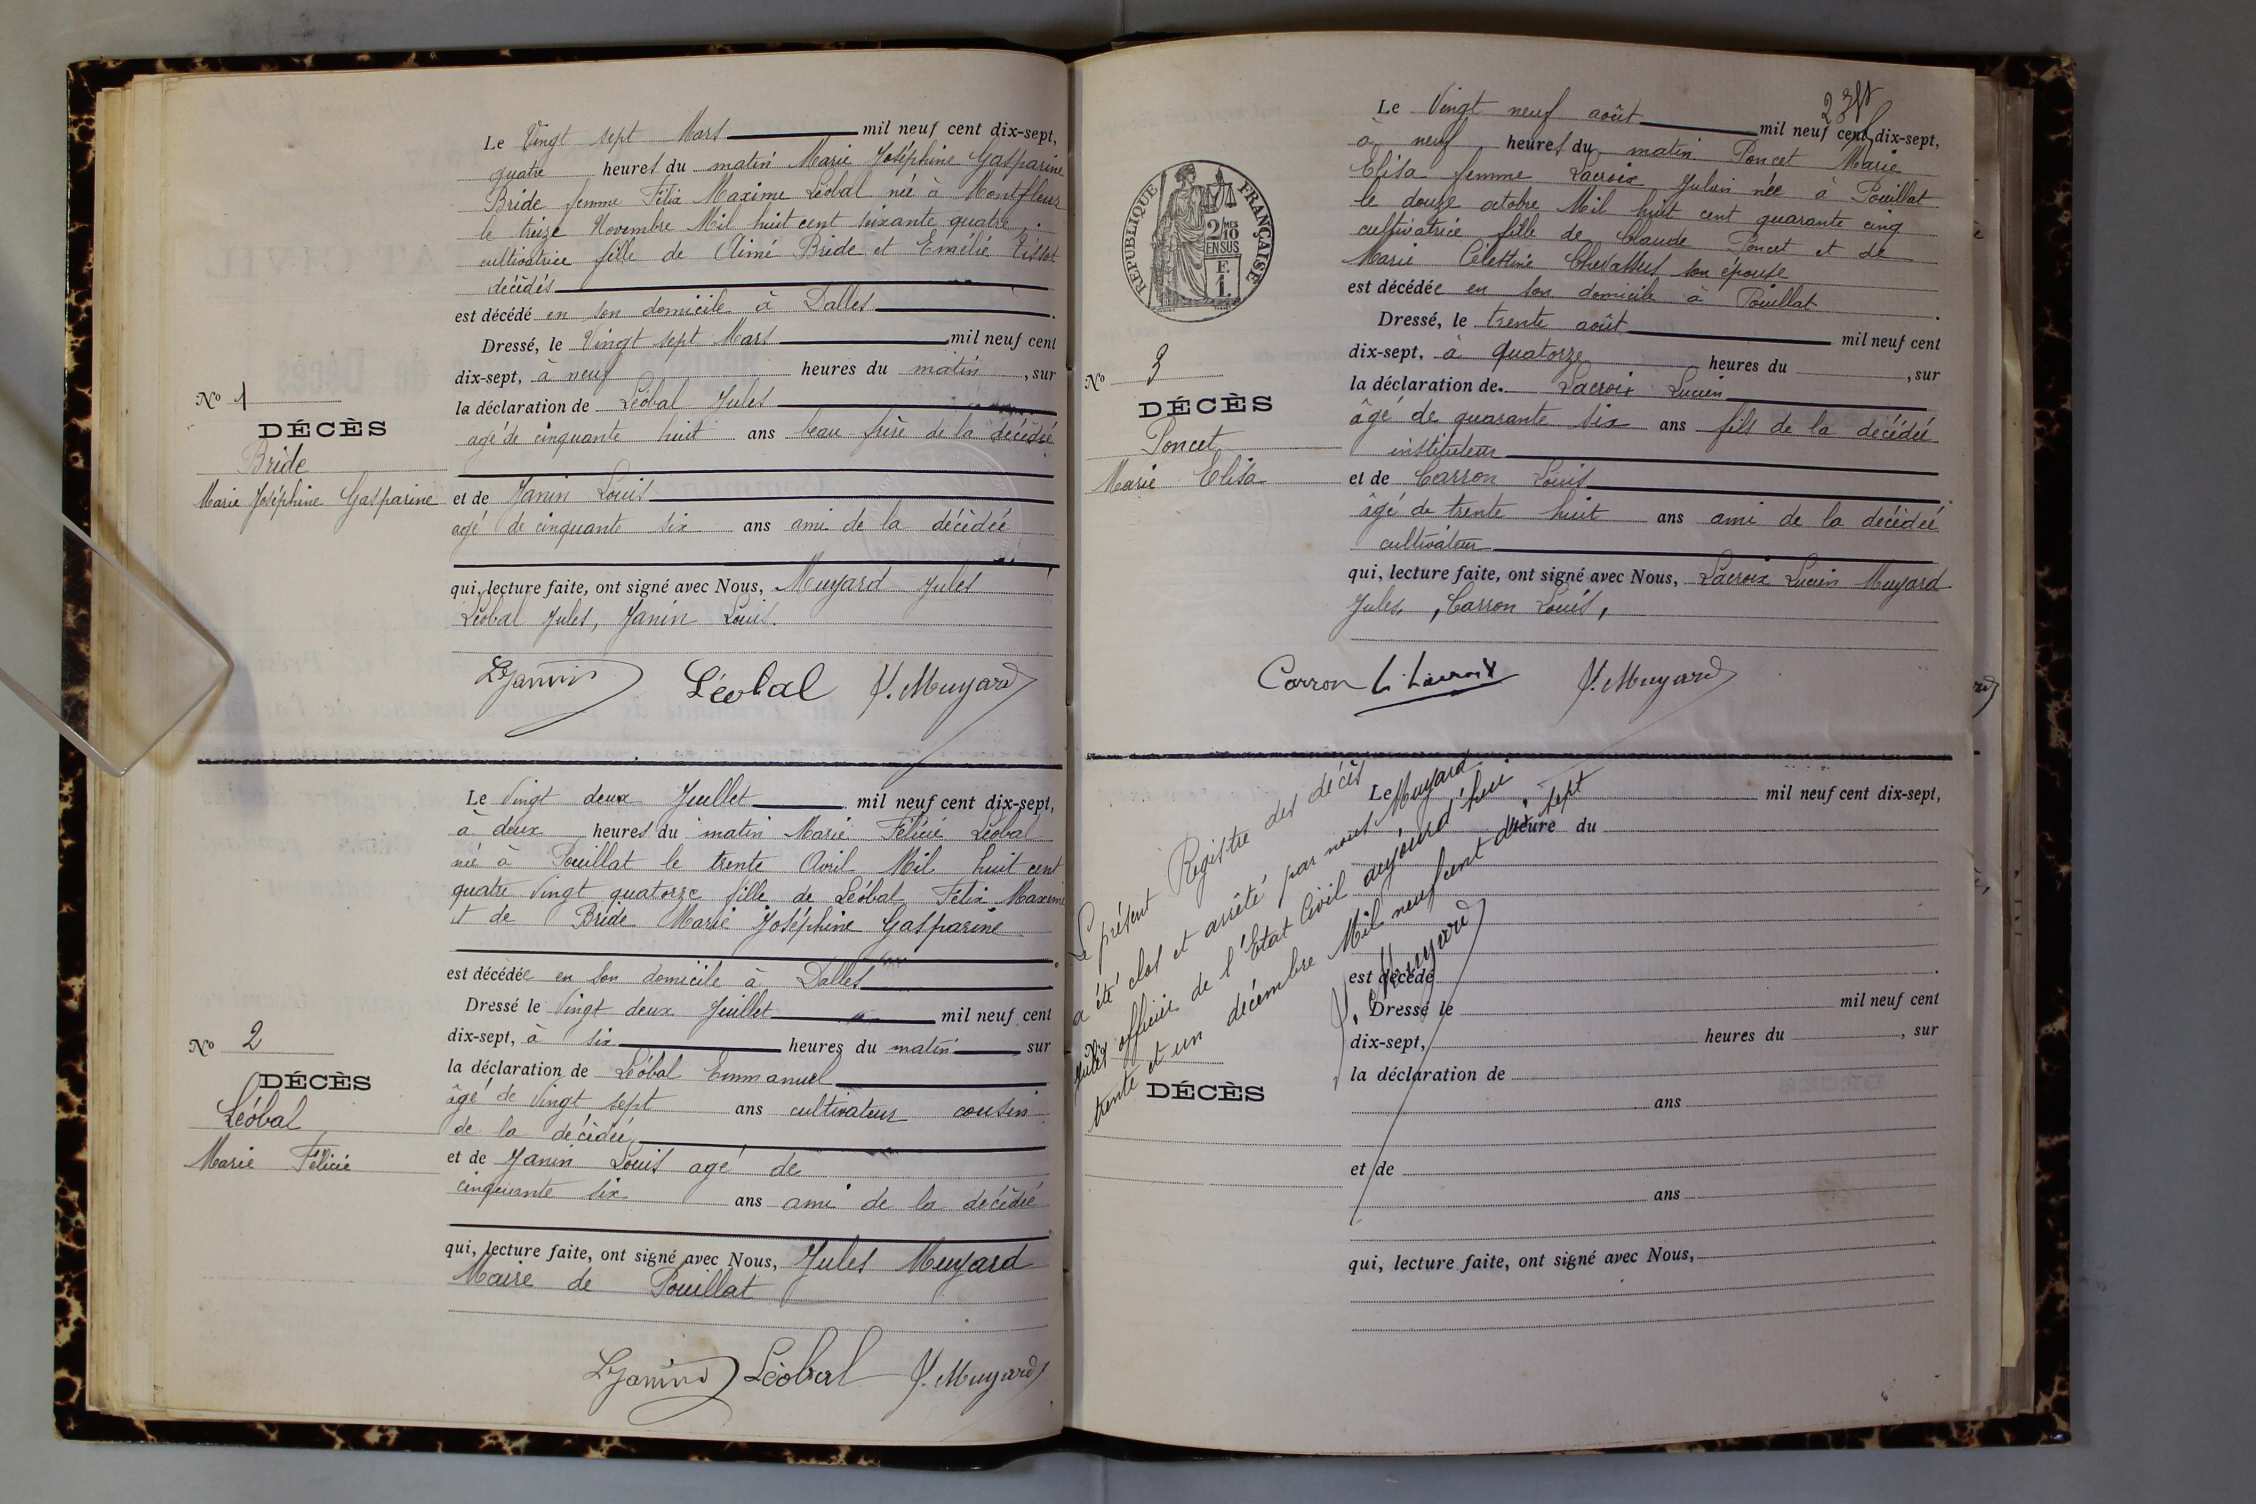 Le Vingt sept Mars mil neuf cent dix-sept,
quatre heures du matin Marie Joséphine Gasparine
Bride femme Félix Maxime Léobal née à Montfleur
le treize Novembre Mil huit cent soixante quatre
cultivatrice fille de Aimé Bride et Emélie Tissot
décédés
est décédé en son domicile à Dalles
Dressé, le Vingt sept Mars mil neuf cent
dix-sept, à neuf heures du matin, sur
la déclaration de Léobal Jules
agé de cinquante huit ans beau frère de la décédée
et de Janin Louis
agé de cinquante six ans ami de la décédée
qui, lecture faite, ont signé avec Nous, Muyard Jules
Léobal Jules, Janin Louis.
LJanin Léobal J. Muyard
No 1
DÉCÈS
Bride
Marie Joséphine Gasparine
Le Vingt deux Juillet mil neuf cent dix-sept,
à deux heures du matin Marie Félicie Léobal
né à Pouillat le trente Avril Mil huit cent
quatre vingt quatorze fille de Léobal Félix Maxime
et de Bride Marie Joséphine Gasparine
est décédée en son domicile à Dalles
Dressé le Vingt deux Juillet mil neuf cent
dix-sept, à six heures du matin, sur
la déclaration de Léobal Emmanuel
âgé de Vingt sept ans cultivateur cousin
de la décédée
et de Janin Louis agé de
cinquante six ans ami de la décédé
qui, lecture faite, ont signé avec Nous, Jules Muyard
Maire de Pouillat
LJanin Léobal J. Muyard
No 2
DÉCÈS
Léobal
Marie Félicie
23
Le Vingt neuf août mil neuf cent dix-sept,
à neuf heures du matin Poncet Marie
Elisa femme Lacroix Julien née à Pouillat
le douze octobre Mil huit cent quarante cinq
cultivatrice fille de Claude Poncet et de
Marie Célestine Chevassus son épouse
est décédée en son domicile à Pouillat
Dressé, le trente août mil neuf cent
dix-sept, à quatorze heures du , sur
la déclaration de Lacroix Lucien
âgé de quarante six ans fils de la décédée
instituteur
et de Carron Louis
âgé de trente huit ans ami de la décédée
cultivateur
qui, lecture faite, ont signé avec Nous, Lacroix Lucien Muyard
Jules, Carron Louis,
Carron L. Lacroix J. Muyard
RÉPUBLIQUE FRANÇAISE
2/10MES
EN SUS
F.
1.
No 3
DÉCÈS
Poncet
Marie Elisa
Le mil neuf cent dix-sept,
heure du
est décédé
Dressé le mil neuf cent
dix-sept, heures du , sur
la déclaration de
ans
et de
ans
qui, lecture faite, ont signé avec Nous,
No
DÉCÈS
Le présent Registre des décès
a été clos et arrêté par nous Muyard
Jules officier de l'Etat Civil aujourd'hui
trente et un décembre Mil neuf cent dix sept
J. Muyard